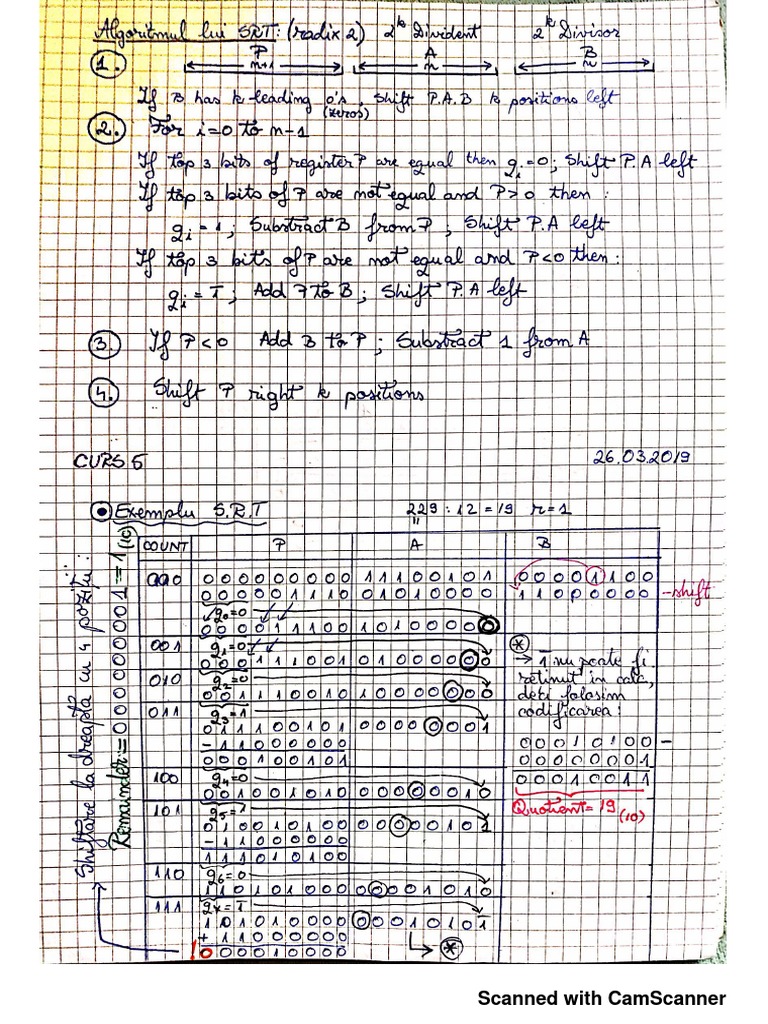 Algoritmul lui SRT: (radix 2) 2^k Divident 2^k Divisor
P A B
1. n+1 n n
If B has k leading 0's, shift P.A.B k positions left
(zeros)
2. For i=0 to n-1
If top 3 bits of register P are equal then q_i=0; Shift P.A left
If top 3 bits of P are not equal and P>0 then:
q_i = 1; Substract B from P; Shift P.A left
If top 3 bits of P are not equal and P<0 then:
q_i = 1̅; Add P to B; Shift P.A left
3. If P<0 Add B to P; Substract 1 from A
4. Shift P right k positions
CURS 5 26.03.2019
Exemplu S.R.T 229 : 12 = 19 r=1
COUNT P A B
000 000000000 11100101 00001100
000001110 01010000 11000000 - shift
q0=0
000011100 10100000
001 q1=0
000111001 01000000
010 q2=0
001110010 10000000
011 q3=1
011100101 00000001
- 11000000
000100101
100 q4=0
001001010 00000010
101 q5=1
010010100 00000101
- 11000000
111010100
110 q6=0
110101000 00001010
111 q7=1̅
101010000 00010101̅
+ 11000000
! 000010000
→ 1̅ nu poate fi
reținut în calc,
deci folosim
codificarea:
00010100 -
00000001
00010011
Quotient = 19 (10)
Shiftare la dreapta cu 4 poziții:
Remainder: = 000000001 = 1 (10)
Scanned with CamScanner